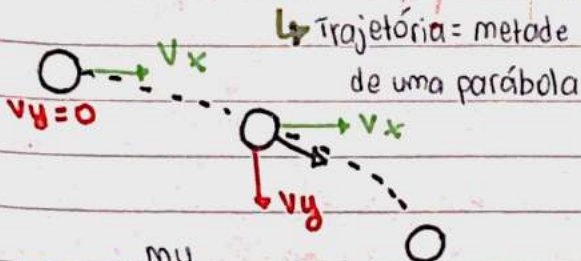 ↳ Trajetória = metade
de uma parábola
Vx
Vy=0
Vx
Vy
mu